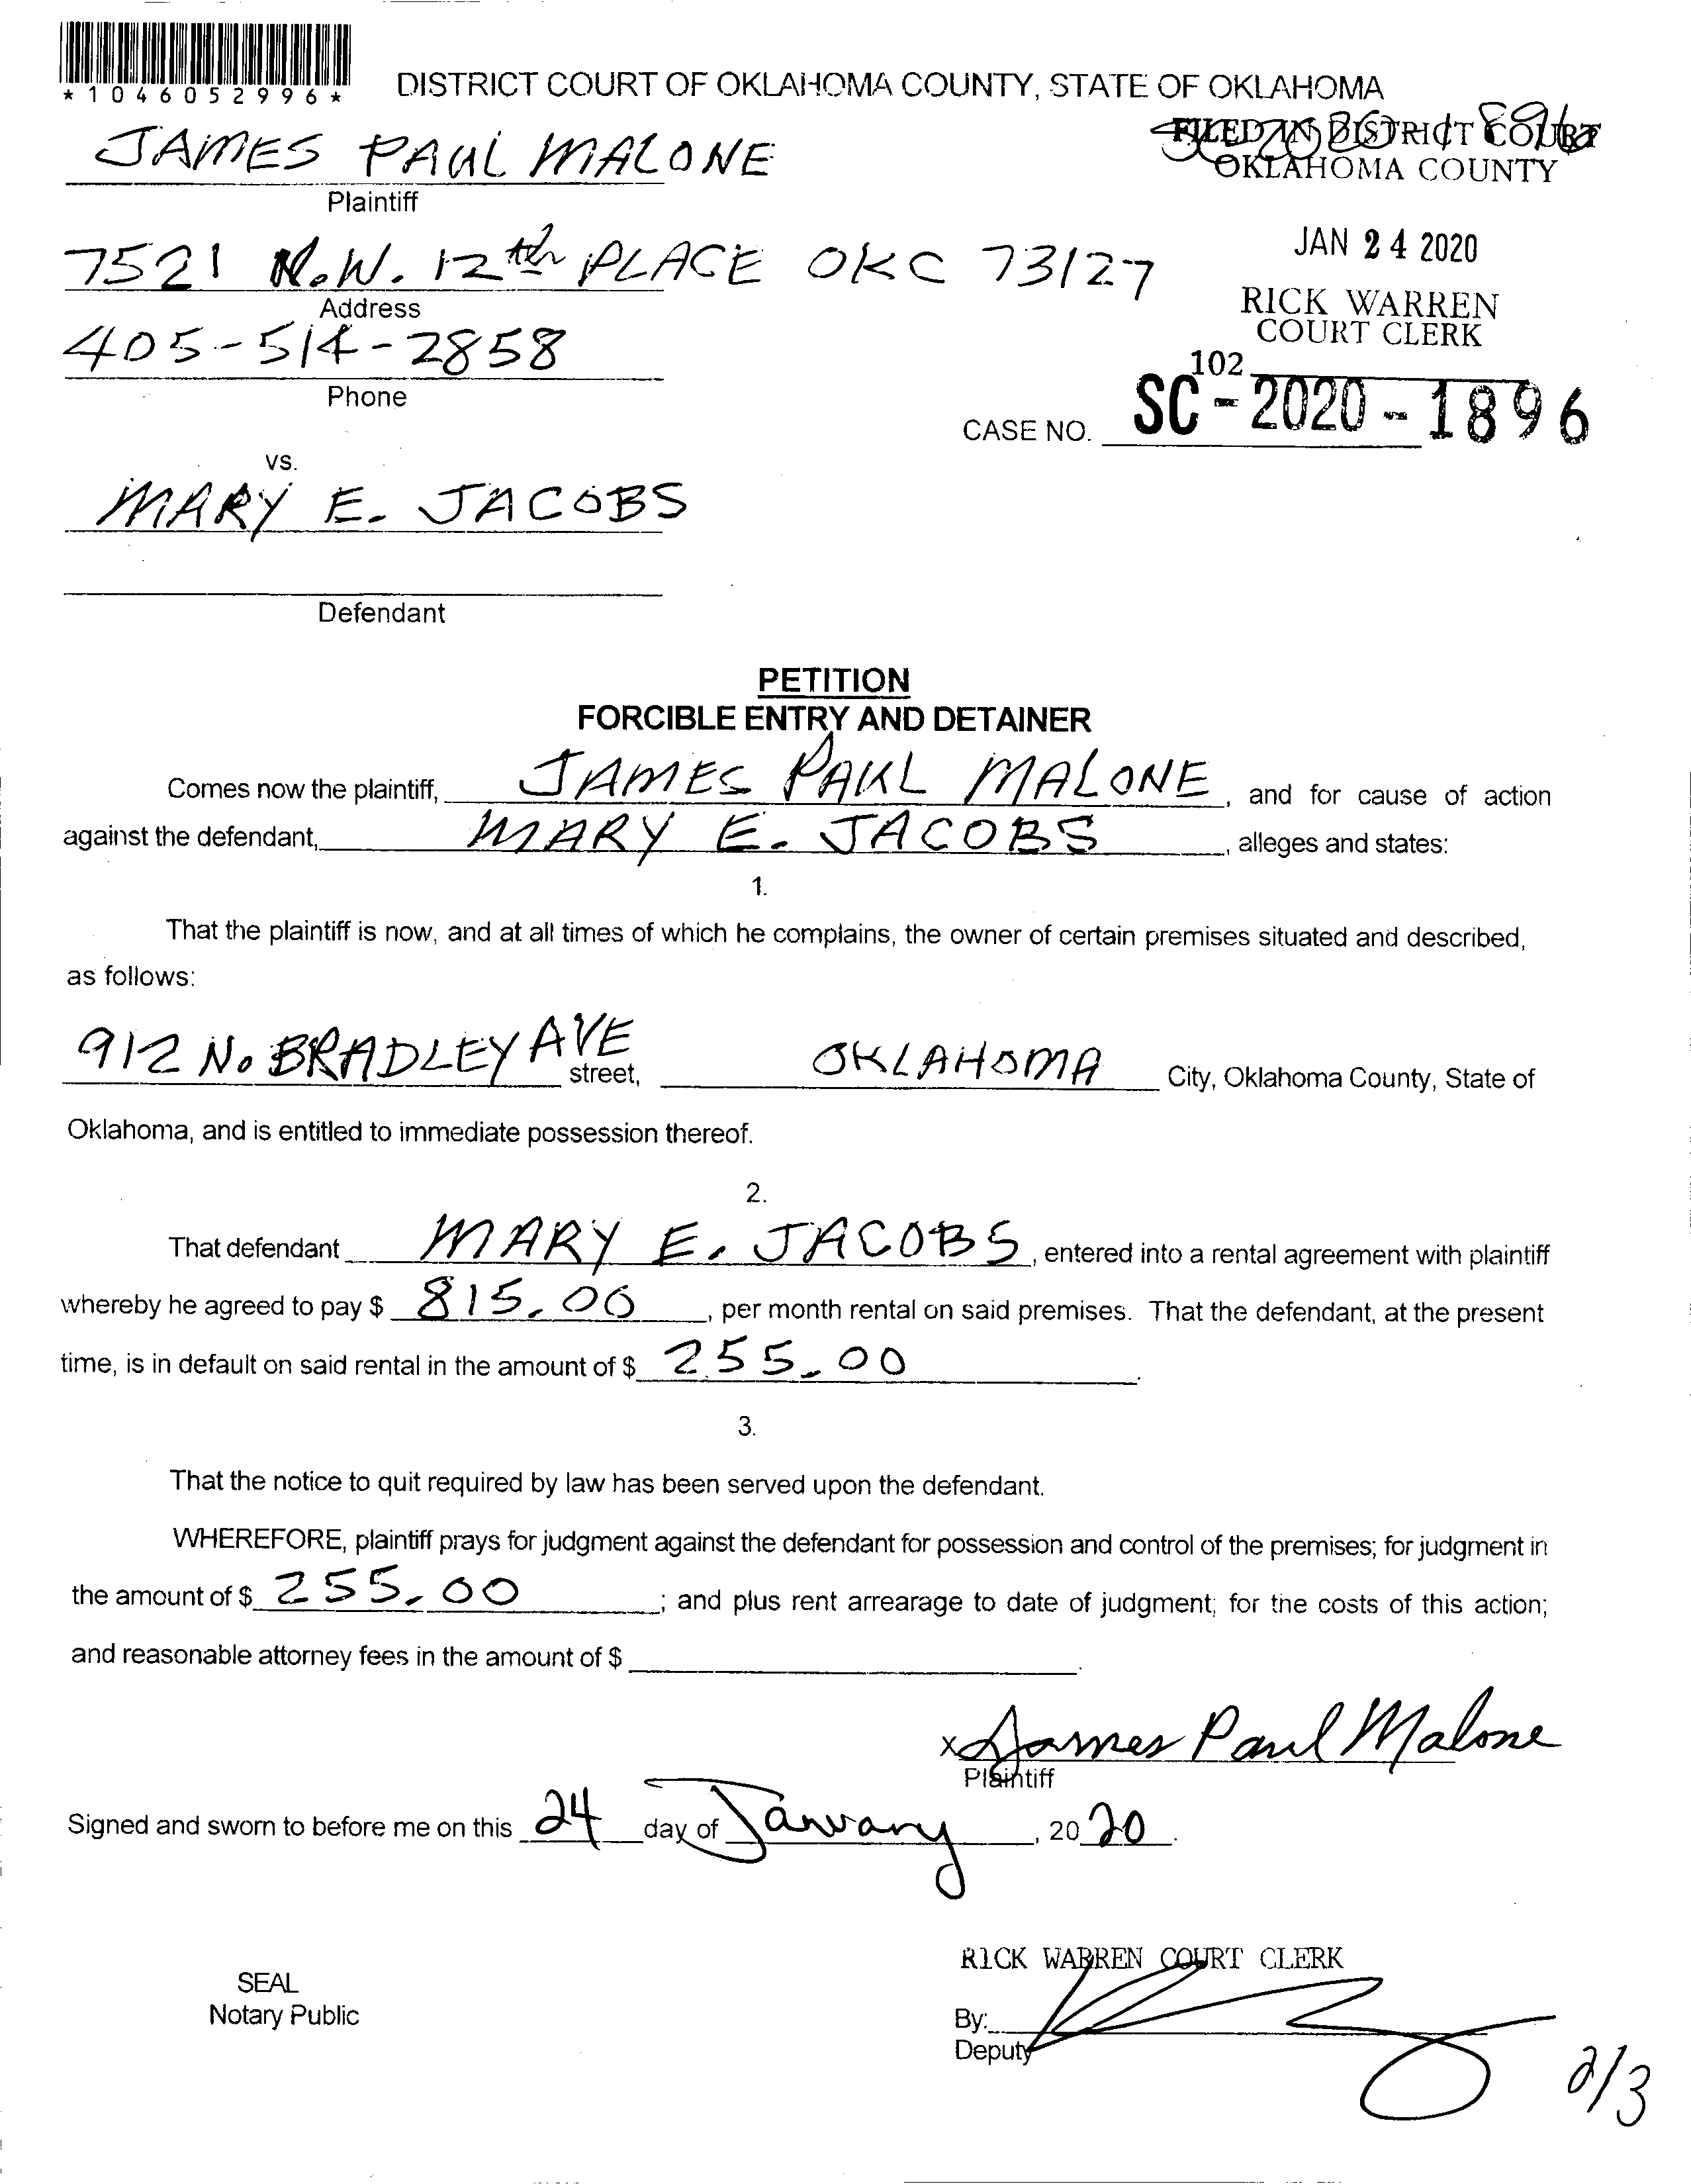 *1046052996*
DISTRICT COURT OF OKLAHOMA COUNTY, STATE OF OKLAHOMA
FILED IN DISTRICT COURT
OKLAHOMA COUNTY
JAMES PAUL MALONE
Plaintiff
JAN 24 2020
7521 N.W. 12th PLACE OKC 73127
Address
RICK WARREN
COURT CLERK
405-514-2858
Phone
102
CASE NO. SC-2020-1896
vs.
MARY E. JACOBS
Defendant
PETITION
FORCIBLE ENTRY AND DETAINER
Comes now the plaintiff, JAMES PAUL MALONE, and for cause of action
against the defendant, MARY E. JACOBS, alleges and states:
1.
That the plaintiff is now, and at all times of which he complains, the owner of certain premises situated and described,
as follows:
912 No BRADLEY AVE street, OKLAHOMA City, Oklahoma County, State of
Oklahoma, and is entitled to immediate possession thereof.
2.
That defendant MARY E. JACOBS, entered into a rental agreement with plaintiff
whereby he agreed to pay $ 815.00, per month rental on said premises. That the defendant, at the present
time, is in default on said rental in the amount of $ 255.00.
3.
That the notice to quit required by law has been served upon the defendant.
WHEREFORE, plaintiff prays for judgment against the defendant for possession and control of the premises; for judgment in
the amount of $ 255.00; and plus rent arrearage to date of judgment; for the costs of this action;
and reasonable attorney fees in the amount of $ .
x James Paul Malone
Plaintiff
Signed and sworn to before me on this 24 day of January, 2020.
RICK WARREN COURT CLERK
SEAL
Notary Public
By:
Deputy
2/3